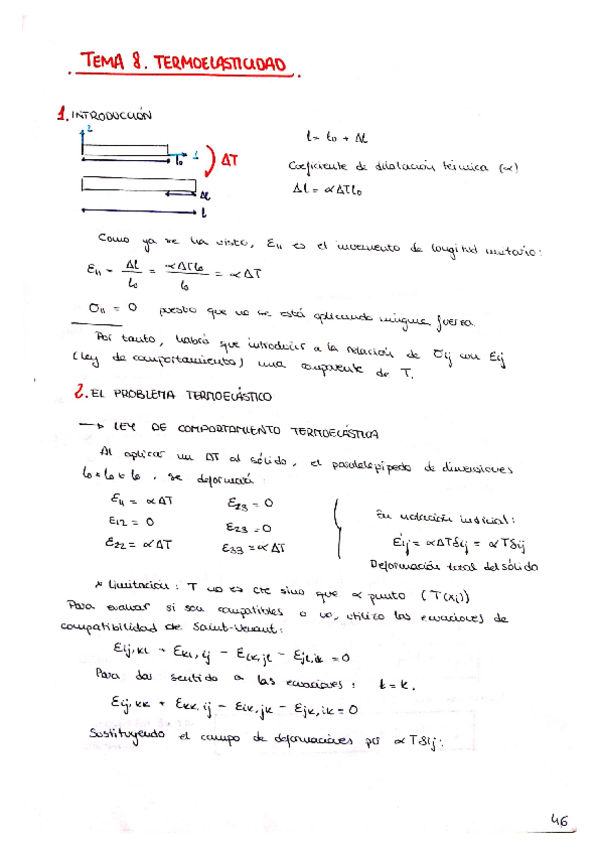 TEMA 8. TERMOELASTICIDAD.
1. INTRODUCCIÓN
2
l₀ 1 ΔT
Δl
l
l = l₀ + Δl
Coeficiente de dilatación térmica (α)
Δl = αΔTl₀
Como ya se ha visto, ε₁₁ es el incremento de longitud unitario:
ε₁₁ = Δl/l₀ = αΔTl₀/l₀ = αΔT
σ₁₁ = 0 puesto que no se está aplicando ninguna fuerza.
Por tanto, habrá que introducir a la relación de σij con εij
(ley de comportamiento) una componente de T.
2. EL PROBLEMA TERMOELÁSTICO
→ LEY DE COMPORTAMIENTO TERMOELÁSTICA
Al aplicar un ΔT al sólido, el paralelepípedo de dimensiones
l₀ × l₀ × l₀, se deformará
ε₁₁ = αΔT ε₂₃ = 0
ε₁₂ = 0 ε₂₃ = 0
ε₂₂ = αΔT ε₃₃ = αΔT
En notación indicial:
εij = αΔTδij = αTδij
Deformación total del sólido
* Limitación: T no es cte sino que α punto (T(xi))
Para evaluar si son compatibles o no, utilizo las ecuaciones de
compatibilidad de Saint-Venant:
εij,kl + εkl,ij - εik,jl - εjl,ik = 0
Para dar sentido a las ecuaciones: l = k.
εij,kk + εkk,ij - εik,jk - εjk,ik = 0
Sustituyendo el campo de deformaciones por αTδij:
46